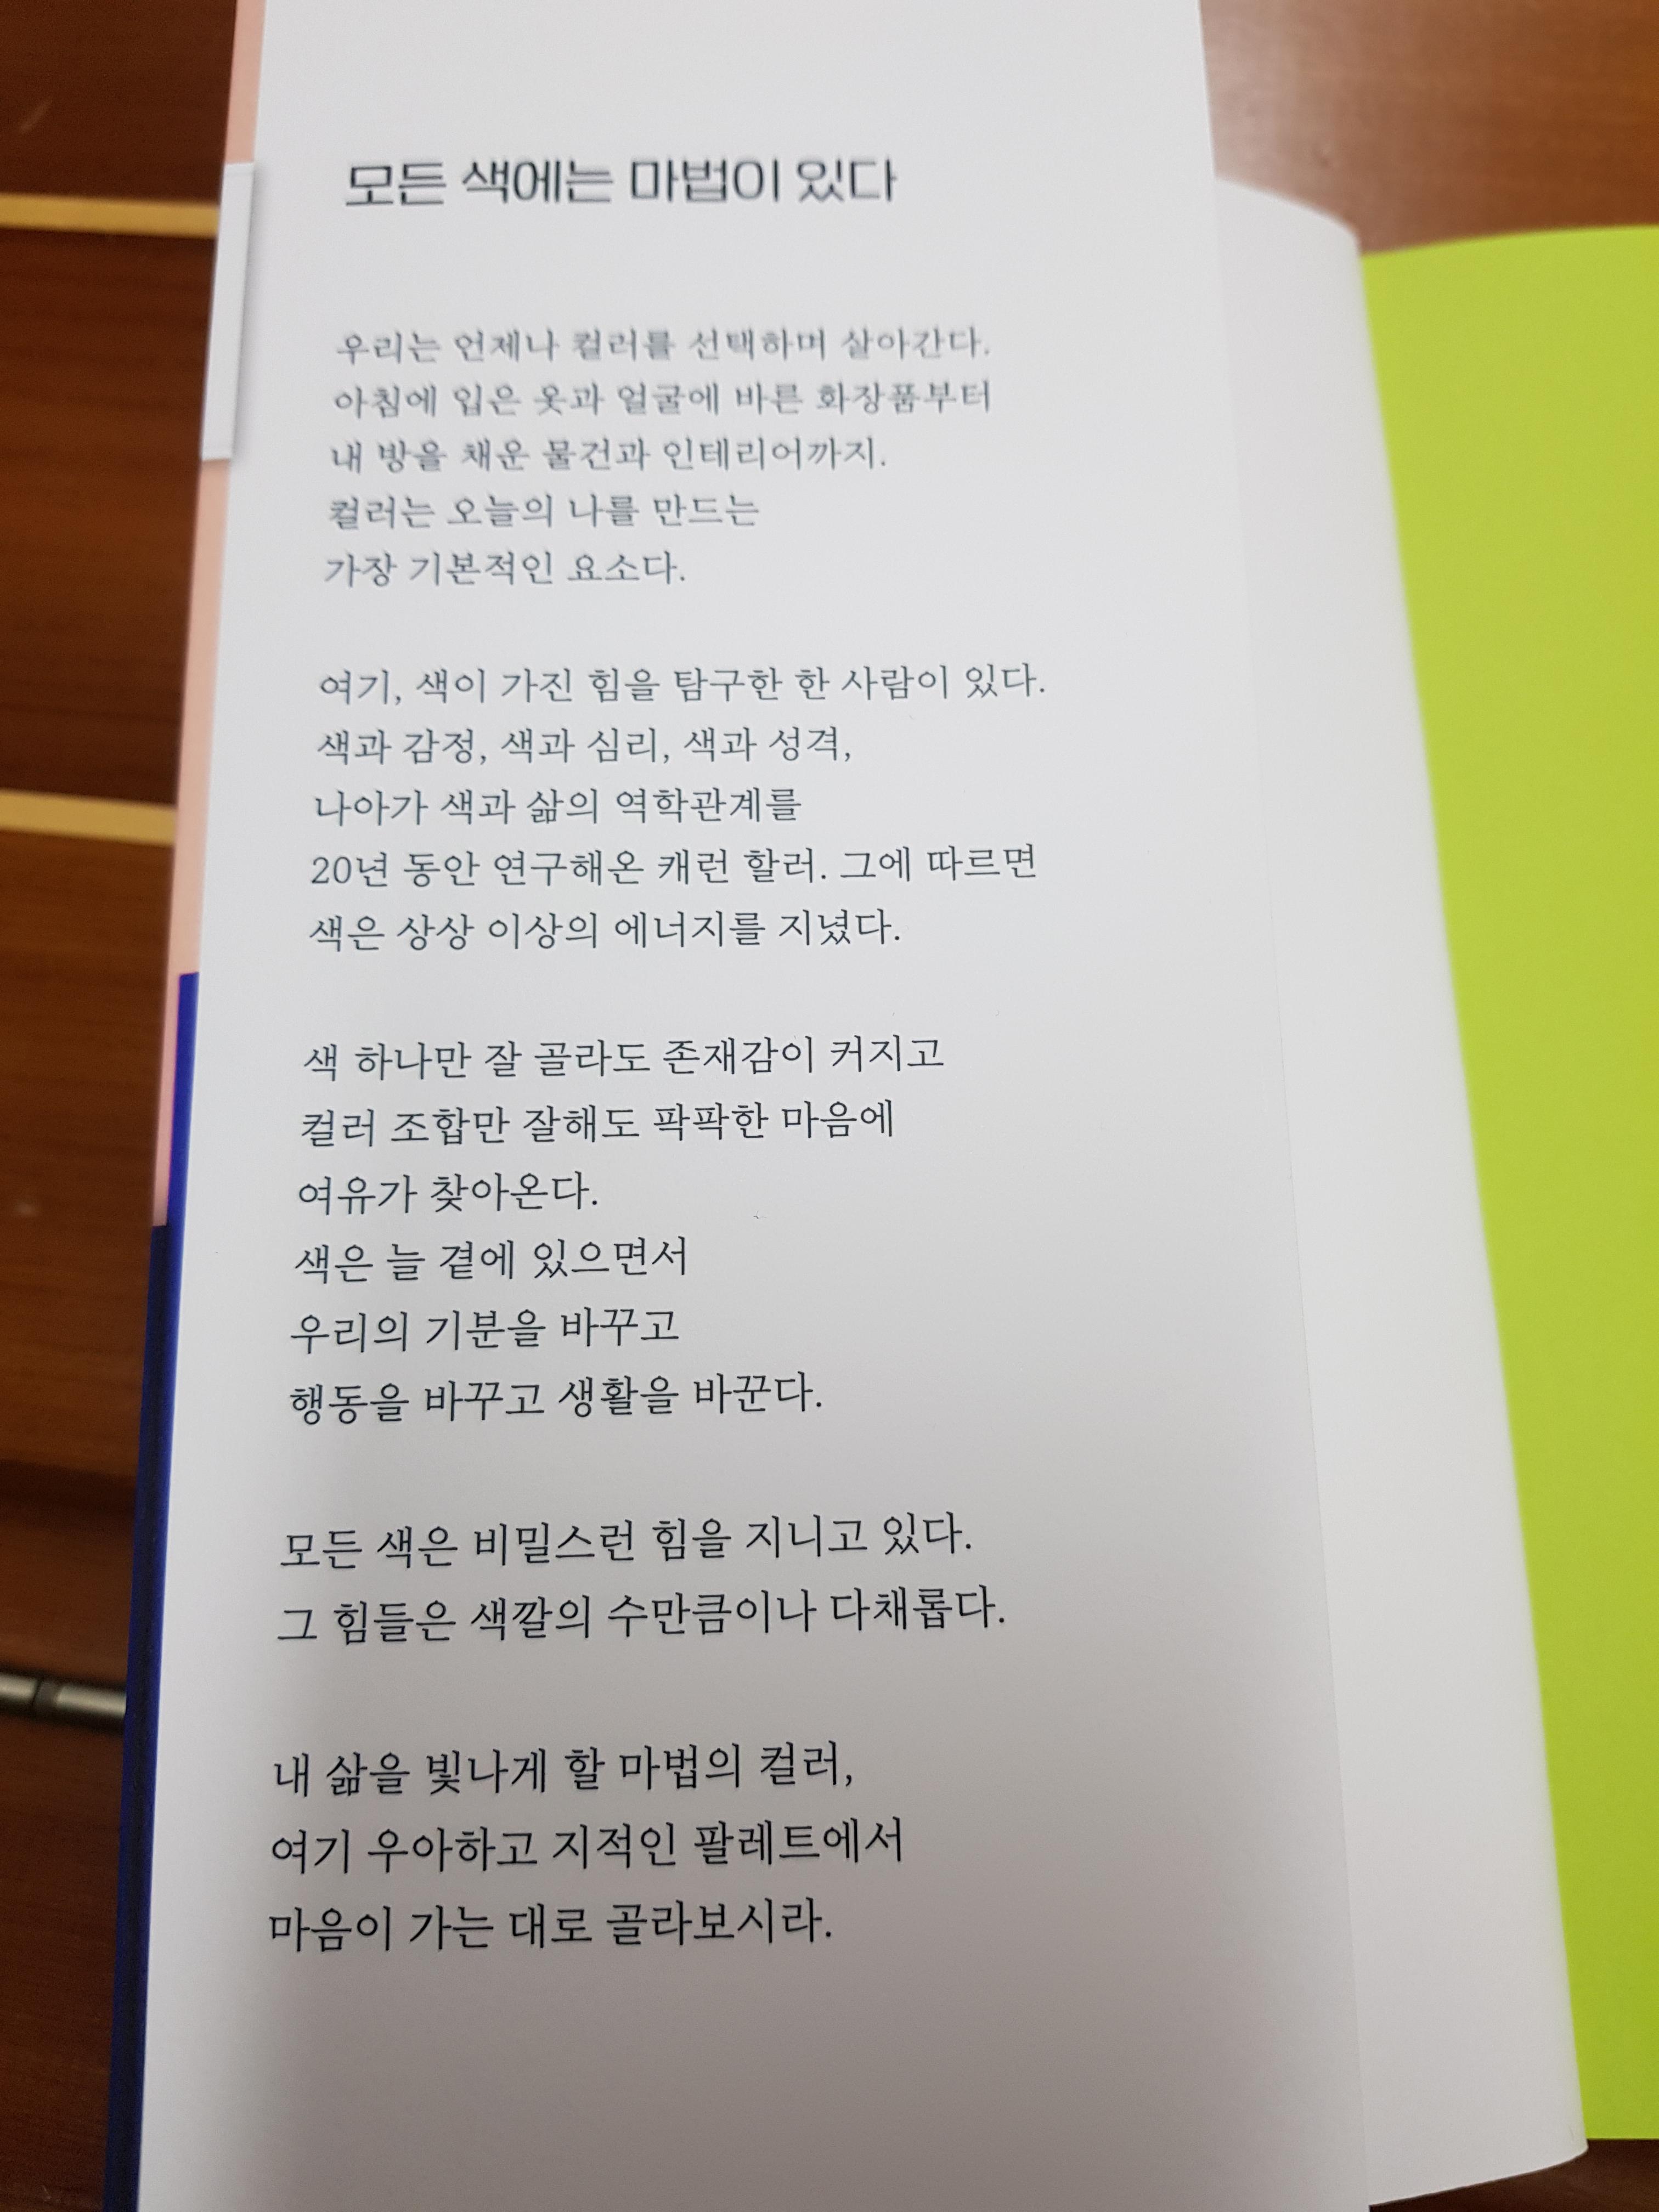 모든 색에는 마법이 있다
우리는 언제나 컬러를 선택하며 살아간다.
아침에 입은 옷과 얼굴에 바른 화장품부터
내 방을 채운 물건과 인테리어까지.
컬러는 오늘의 나를 만드는
가장 기본적인 요소다.
여기, 색이 가진 힘을 탐구한 한 사람이 있다.
색과 감정, 색과 심리, 색과 성격,
나아가 색과 삶의 역학관계를
20년 동안 연구해온 캐런 할러. 그에 따르면
색은 상상 이상의 에너지를 지녔다.
색 하나만 잘 골라도 존재감이 커지고
컬러 조합만 잘해도 팍팍한 마음에
여유가 찾아온다.
색은 늘 곁에 있으면서
우리의 기분을 바꾸고
행동을 바꾸고 생활을 바꾼다.
모든 색은 비밀스런 힘을 지니고 있다.
그 힘들은 색깔의 수만큼이나 다채롭다.
내 삶을 빛나게 할 마법의 컬러,
여기 우아하고 지적인 팔레트에서
마음이 가는 대로 골라보시라.